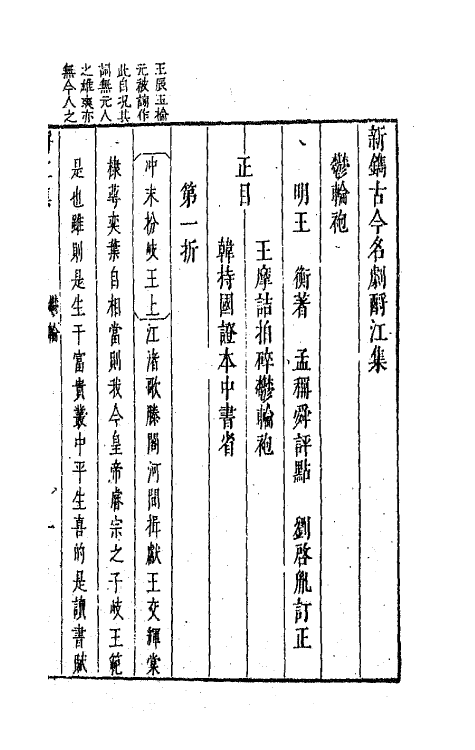 新鐫古今名劇酹江集
鬱輪袍
明王　衡著　孟稱舜評點　劉啓胤訂正
正目
王摩詰拍碎鬱輪袍
韓持國證本中書省
第一折
〔冲末扮岐王上〕江渚歌滕閣河間揖獻王交輝棠
棣萼奕葉自相當則我今皇帝睿宗之子岐王範
是也雖則是生于富貴叢中平生喜的是讀書賦
鬱輪
一
王辰玉掄
元被謗作
此自况其
詞無元人
之雄爽亦
無今人之